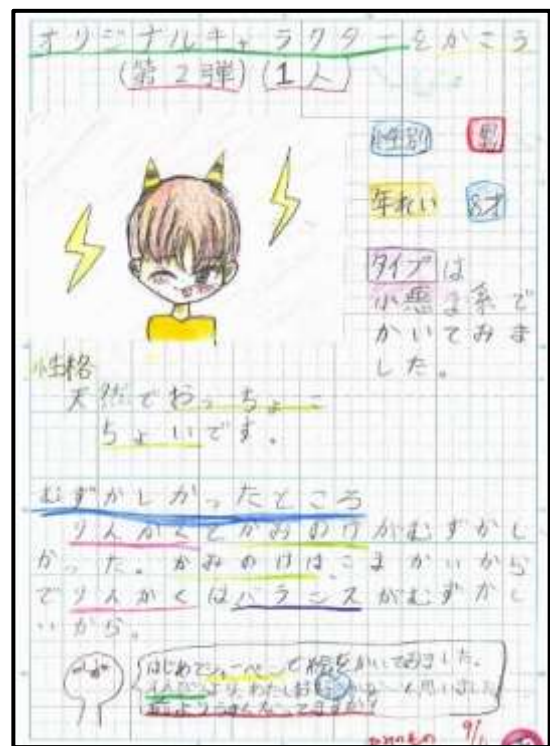 オリジナルキャラクターをかこう
(第2弾)(1人)
性別 男
年れい 8才
タイプは
小悪ま系で
かいてみま
した。
性格
天然でおっちょこ
ちょいです。
むずかしかったところ
りんかくとかみのけがむずかし
かった。かみのけは、こまかいから
でりんかくはバランスがむずかし
いから。
はじめて で絵をかいてみました。
より、わたし と思いました
前よりうまくなってますか?
9/